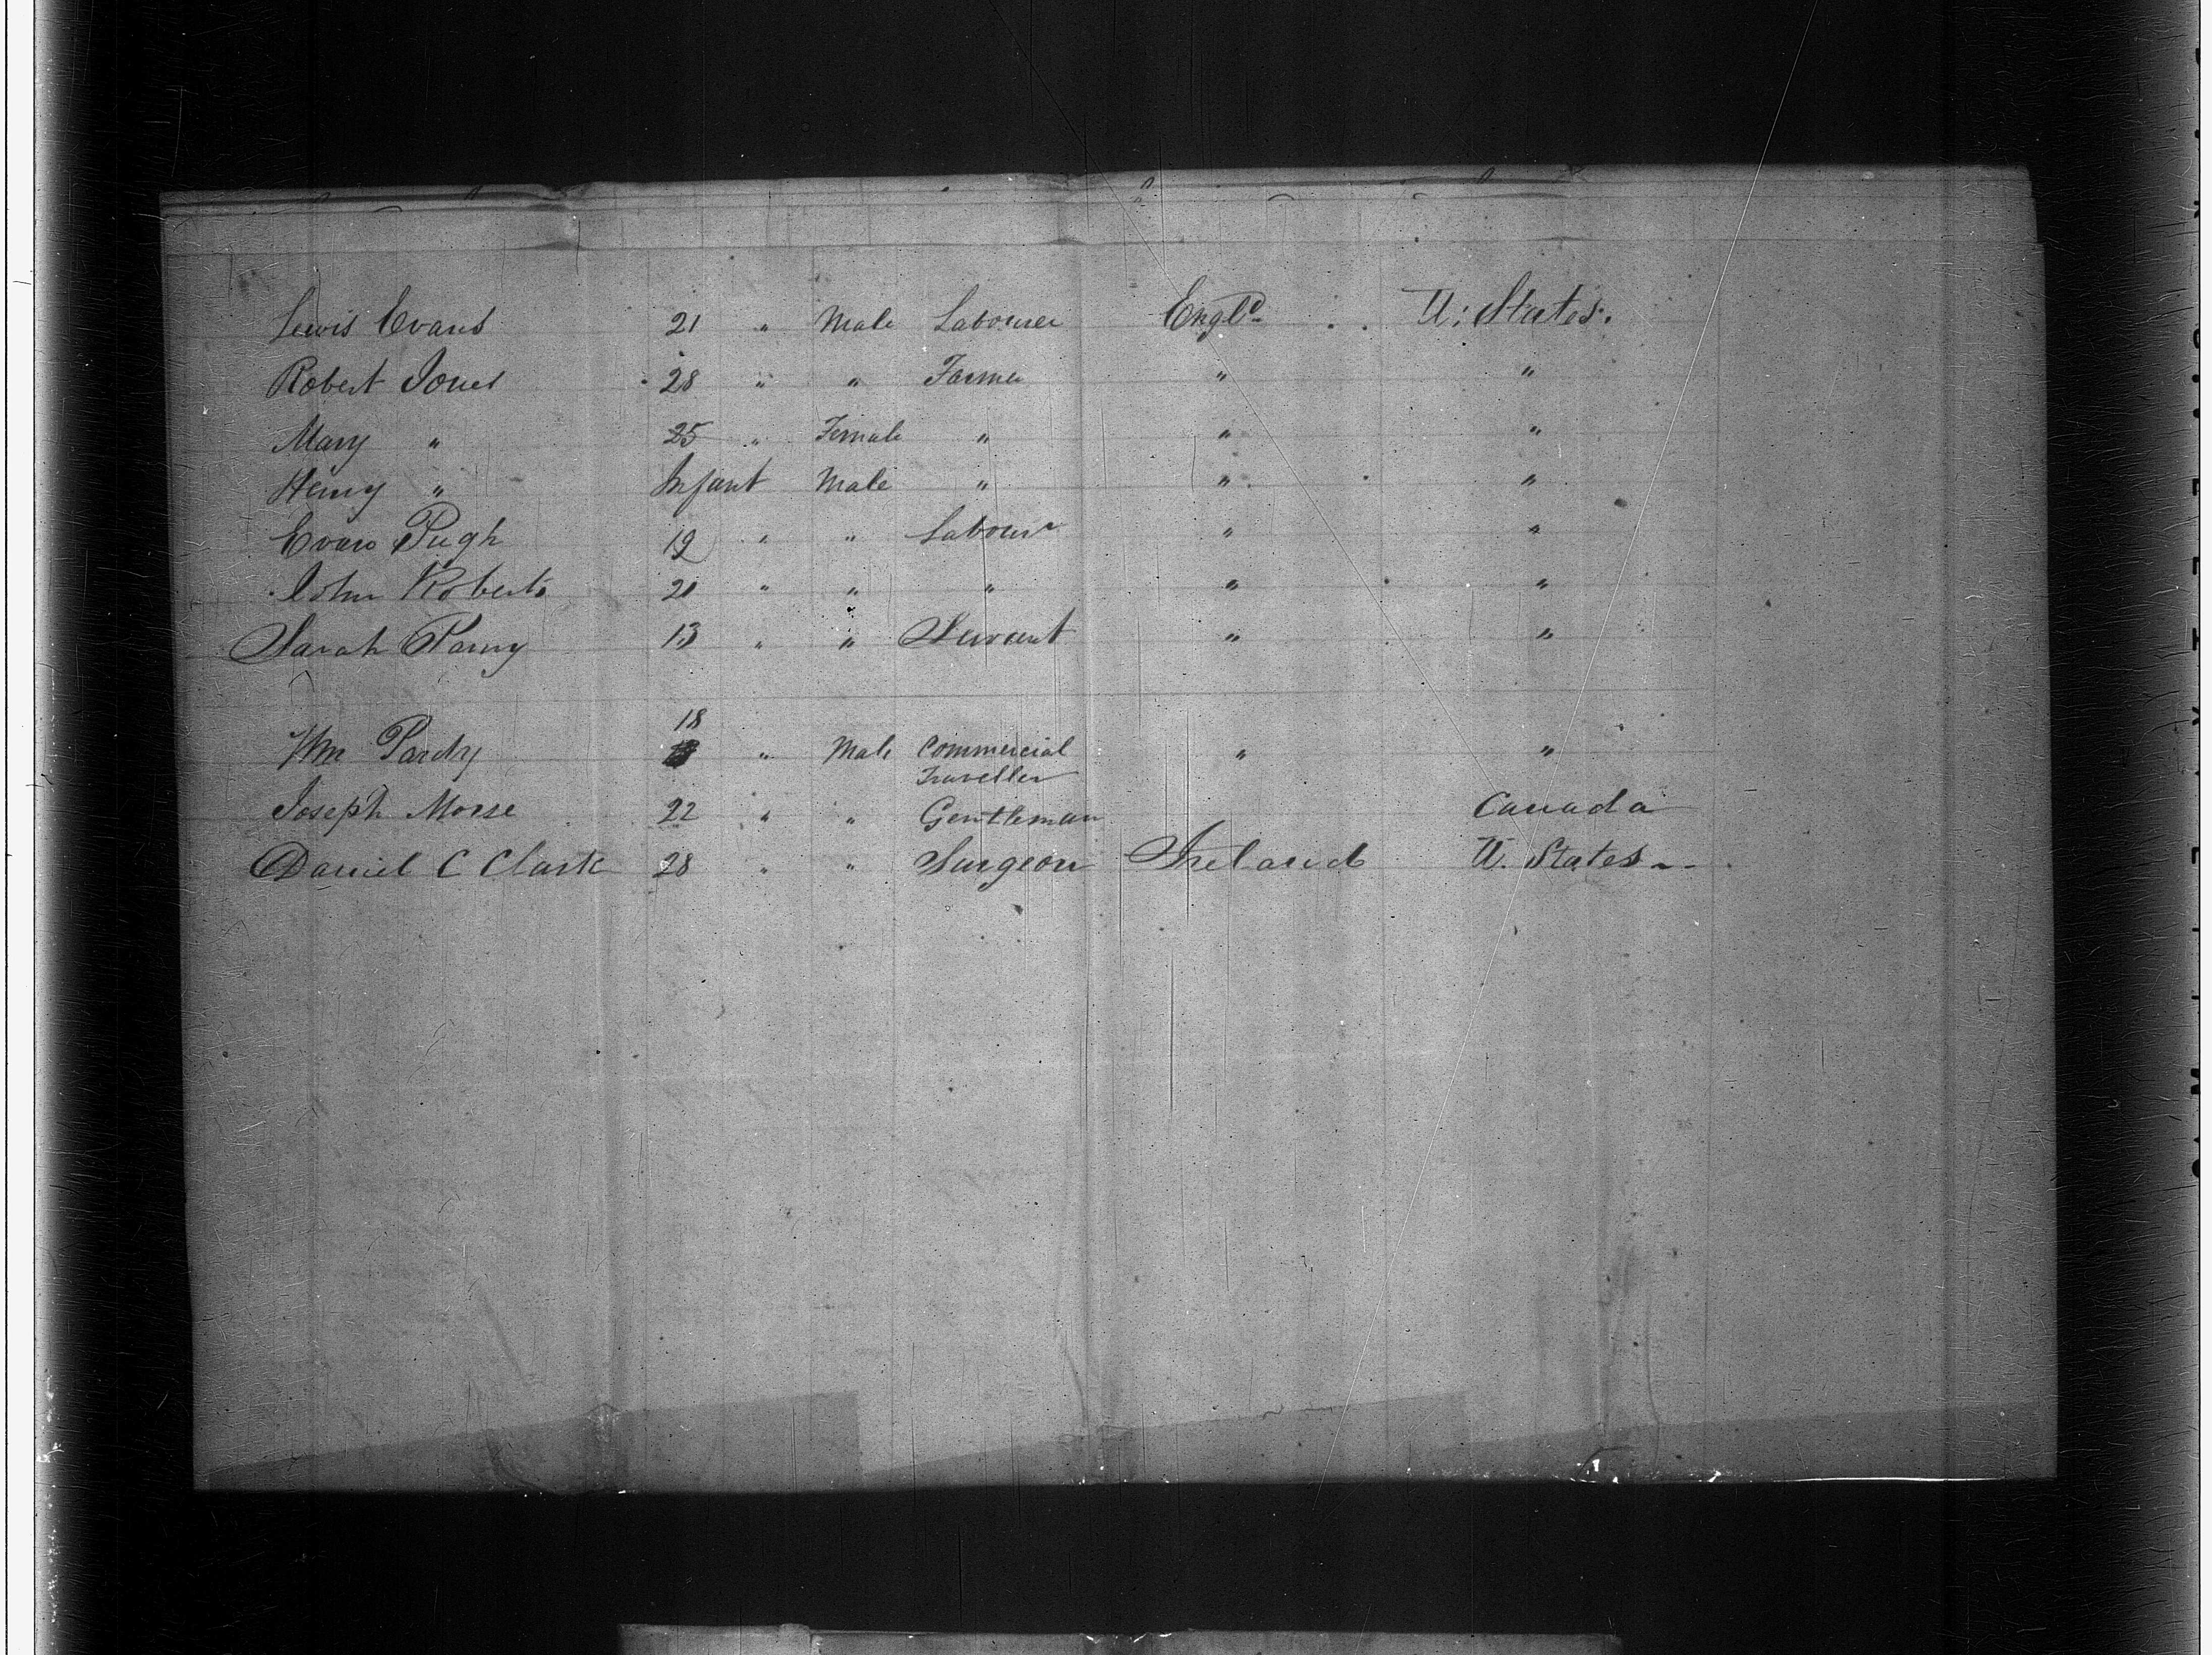 Lewis Evans 21 " Male Labourer Engld . . U: States.
Robert Jones 28 " " Farmer " "
Mary " 25 " Female " " "
Henry " Infant Male " " "
Evan Pugh 19 " " Labourr " "
John Roberts 20 " " " " "
Sarah Parry 13 " " Servant " "
18
Wm Pardy " Male Commercial " "
Traveller
Joseph Morse 22 " " Gentleman Canada
Daniel C Clark 28 " " Surgeon Ireland U. States